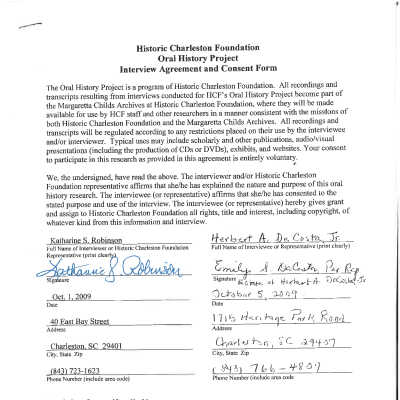 Historic Charleston Foundation
Oral History Project
Interview Agreement and Consent Form
The Oral History Project is a program of Historic Charleston Foundation. All recordings and
transcripts resulting from interviews conducted for HCF's Oral History Project become part of
the Margaretta Childs Archives at Historic Charleston Foundation, where they will be made
available for use by HCF staff and other researchers in a manner consistent with the missions of
both Historic Charleston Foundation and the Margaretta Childs Archives. All recordings and
transcripts will be regulated according to any restrictions placed on their use by the interviewee
and/or interviewer. Typical uses may include scholarly and other publications, audio/visual
presentations (including the production of CDs or DVDs), exhibits, and websites. Your consent
to participate in this research as provided in this agreement is entirely voluntary.
We, the undersigned, have read the above. The interviewer and/or Historic Charleston
Foundation representative affirms that she/he has explained the nature and purpose of this oral
history research. The interviewee (or representative) affirms that she/he has consented to the
stated purpose and use of the interview. The interviewee (or representative) hereby gives grant
and assign to Historic Charleston Foundation all rights, title and interest, including copyright, of
whatever kind from this information and interview.
Katharine S. Robinson
Full Name of Interviewer or Historic Charleston Foundation
Representative (print clearly)
Katharine S. Robinson
Signature
Oct. 1, 2009
Date
40 East Bay Street
Address
Charleston, SC 29401
City, State Zip
(843) 723-1623
Phone Number (include area code)
Herbert A. DeCosta, Jr.
Full Name of Interviewee or Representative (print clearly)
Emily S. DaCosta, Per Rep
Signature Estate of Herbert A DaCosta Jr
October 5, 2009
Date
1715 Heritage Park Road
Address
Charleston, SC 29407
City, State Zip
(843) 766-4807
Phone Number (include area code